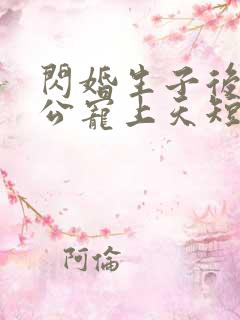 閃婚生子後
公寵上天短
阿倫